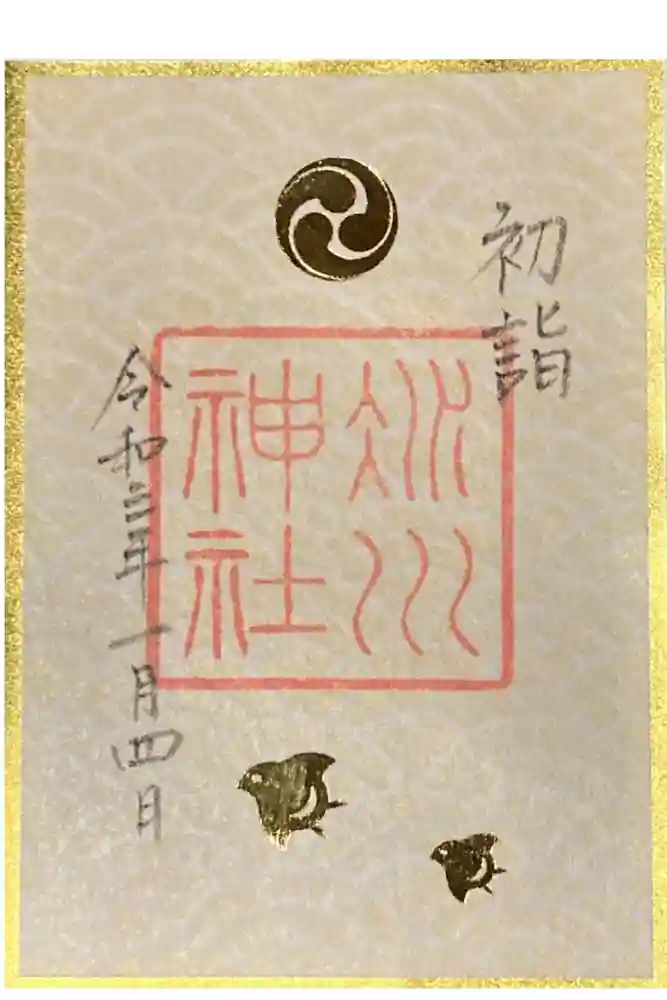 初詣
冰川
神社
令和三年一月四日